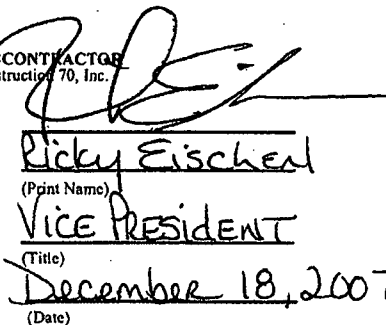 CONTRACTOR
struction 70, Inc.
Ricky Eischen
(Print Name)
Vice President
(Title)
December 18, 2007
(Date)